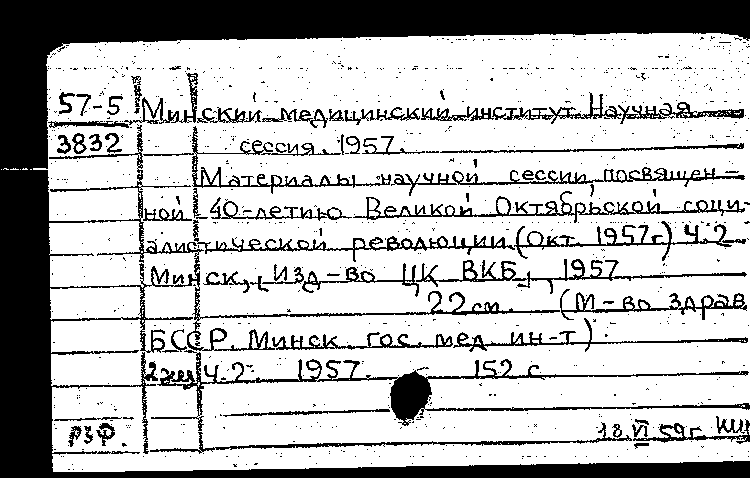 57-5 Минский медицинский институт. Научная
3832 сессия. 1957.
Материалы научной сессии, посвящен-
ной 40-летию Великой Октябрьской соци-
алистической революции. (Окт. 1957г.) Ч.2
Минск, [Изд-во ЦК ВКБ], 1957
22 см. (М-во здрав.
БССР. Минск. гос. мед. ин-т).
2 экз Ч.2. 1957. 152 с
РЗФ. 18.VI 59г.